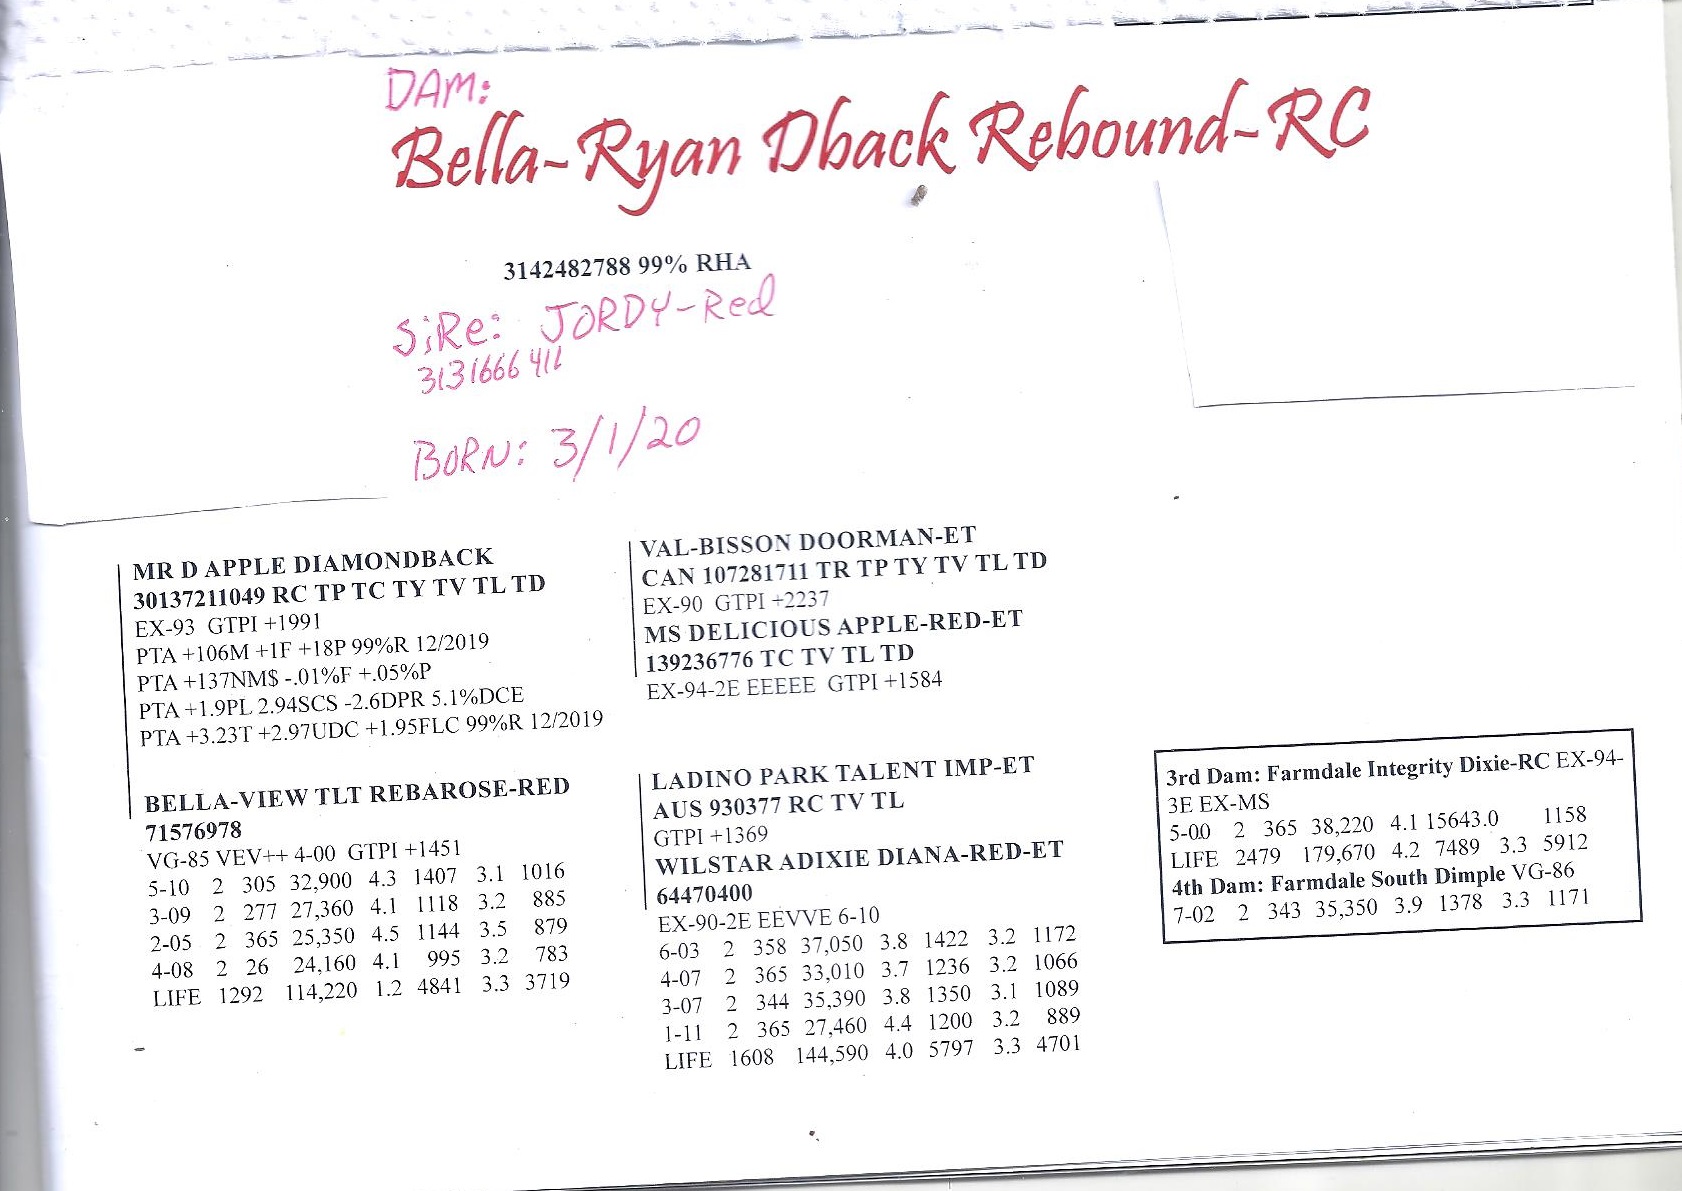 DAM:
Bella-Ryan Dback Rebound-RC
3142482788 99% RHA
SiRe: JORDY-Red
3131666411
BORN: 3/1/20
MR D APPLE DIAMONDBACK
30137211049 RC TP TC TY TV TL TD
EX-93 GTPI +1991
PTA +106M +1F +18P 99%R 12/2019
PTA +137NM$ -.01%F +.05%P
PTA +1.9PL 2.94SCS -2.6DPR 5.1%DCE
PTA +3.23T +2.97UDC +1.95FLC 99%R 12/2019
BELLA-VIEW TLT REBAROSE-RED
71576978
VG-85 VEV++ 4-00 GTPI +1451
5-10 2 305 32,900 4.3 1407 3.1 1016
3-09 2 277 27,360 4.1 1118 3.2 885
2-05 2 365 25,350 4.5 1144 3.5 879
4-08 2 26 24,160 4.1 995 3.2 783
LIFE 1292 114,220 1.2 4841 3.3 3719
VAL-BISSON DOORMAN-ET
CAN 107281711 TR TP TY TV TL TD
EX-90 GTPI +2237
MS DELICIOUS APPLE-RED-ET
139236776 TC TV TL TD
EX-94-2E EEEEE GTPI +1584
LADINO PARK TALENT IMP-ET
AUS 930377 RC TV TL
GTPI +1369
WILSTAR ADIXIE DIANA-RED-ET
64470400
EX-90-2E EEVVE 6-10
6-03 2 358 37,050 3.8 1422 3.2 1172
4-07 2 365 33,010 3.7 1236 3.2 1066
3-07 2 344 35,390 3.8 1350 3.1 1089
1-11 2 365 27,460 4.4 1200 3.2 889
LIFE 1608 144,590 4.0 5797 3.3 4701
3rd Dam: Farmdale Integrity Dixie-RC EX-94-
3E EX-MS
5-00 2 365 38,220 4.1 15643.0 1158
LIFE 2479 179,670 4.2 7489 3.3 5912
4th Dam: Farmdale South Dimple VG-86
7-02 2 343 35,350 3.9 1378 3.3 1171